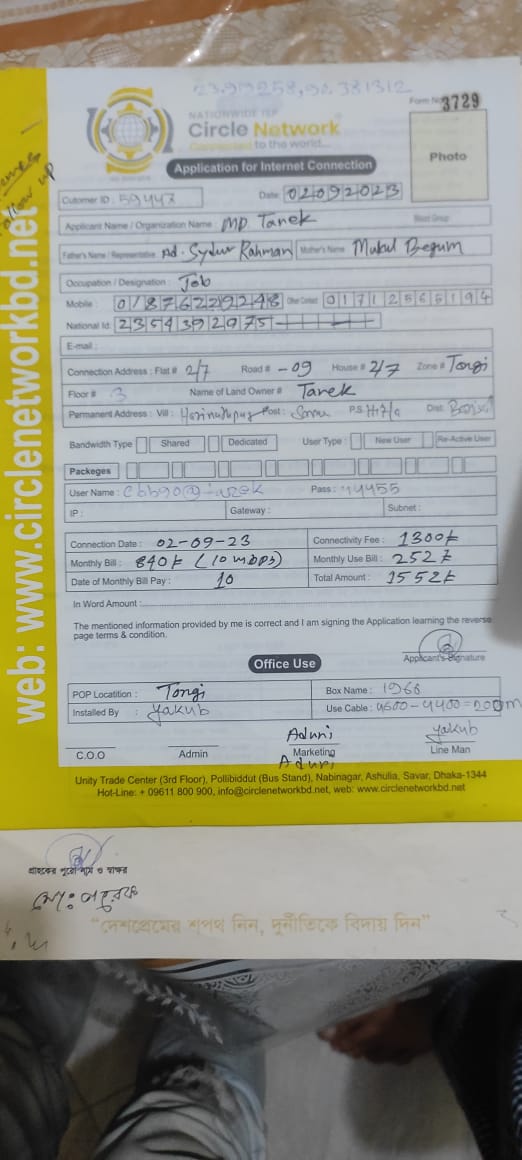 23.919258,90.381312
Form No 3729
NATIONWIDE ISP
Circle Network
Connected to the world...
Application for Internet Connection
Photo
Cutomer ID : 59447
Date: 02092023
Applicant Name / Organization Name : MD Tarek
Blood Group :
Father's Name / Representative : Md. Sydur Rahman Mother's Name : Mukul Begum
Occupation / Designation : Job
Mobile : 01876229248 Other Contact 01712565194
National Id: 2354392975
E-mail :
Connection Address : Flat # 2/7 Road # -09 House # 2/7 Zone # Tongi
Floor # 3 Name of Land Owner # Tarek
Permanent Address : Vill : Post : P.S Dist:
Bandwidth Type Shared Dedicated User Type : New User Re-Active User
Packeges
User Name : Pass :
IP : Gateway : Subnet :
Connection Date : 02-09-23 Connectivity Fee : 1300৳
Monthly Bill : 840৳ (10 mbps) Monthly Use Bill : 252৳
Date of Monthly Bill Pay : 10 Total Amount : 1552৳
In Word Amount :
The mentioned information provided by me is correct and I am signing the Application learning the reverse
page terms & condition.
Applicant's Signature
Office Use
POP Locatition : Tongi Box Name : 1966
Installed By : Yakub Use Cable : 4600-4400=200m
Aduri Yakub
C.O.O Admin Marketing Line Man
Aduri
Unity Trade Center (3rd Floor), Pollibiddut (Bus Stand), Nabinagar, Ashulia, Savar, Dhaka-1344
Hot-Line: + 09611 800 900, info@circlenetworkbd.net, web: www.circlenetworkbd.net
web: www.circlenetworkbd.net
follow up
গ্রাহকের পুরো নাম ও স্বাক্ষর
মোঃ তারেক
“দেশপ্রেমের শপথ নিন, দুর্নীতিকে বিদায় দিন”